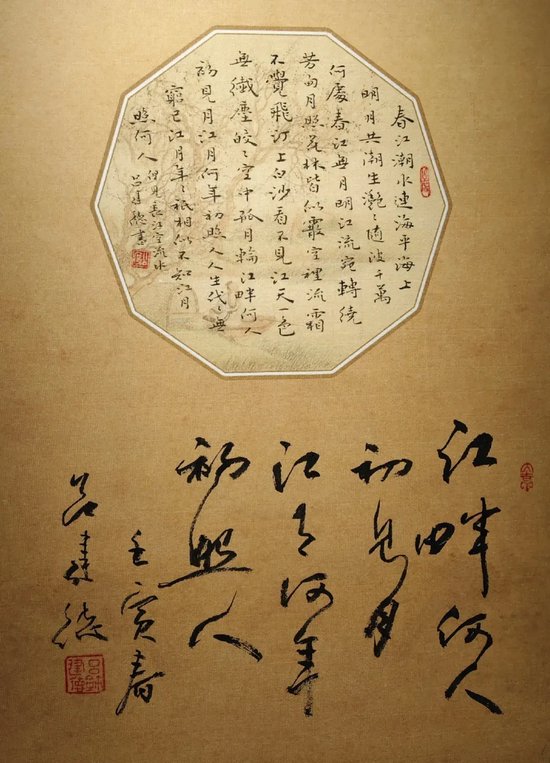 春江潮水連海平海上
明月共潮生灧〻随波千萬
何處春江無月明江流宛轉繞
芳甸月照花林皆似霰空裡流霜
不覺飛汀上白沙看不見江天一色
無纖塵皎〻空中孤月輪江畔何人
初見月江月何年初照人人生代〻無
窮已江月年〻祇相似不知江月
照何人但見長江空流水
吕建德書
江畔何人
初見月
江月何年
初照人
壬寅春
吕建德